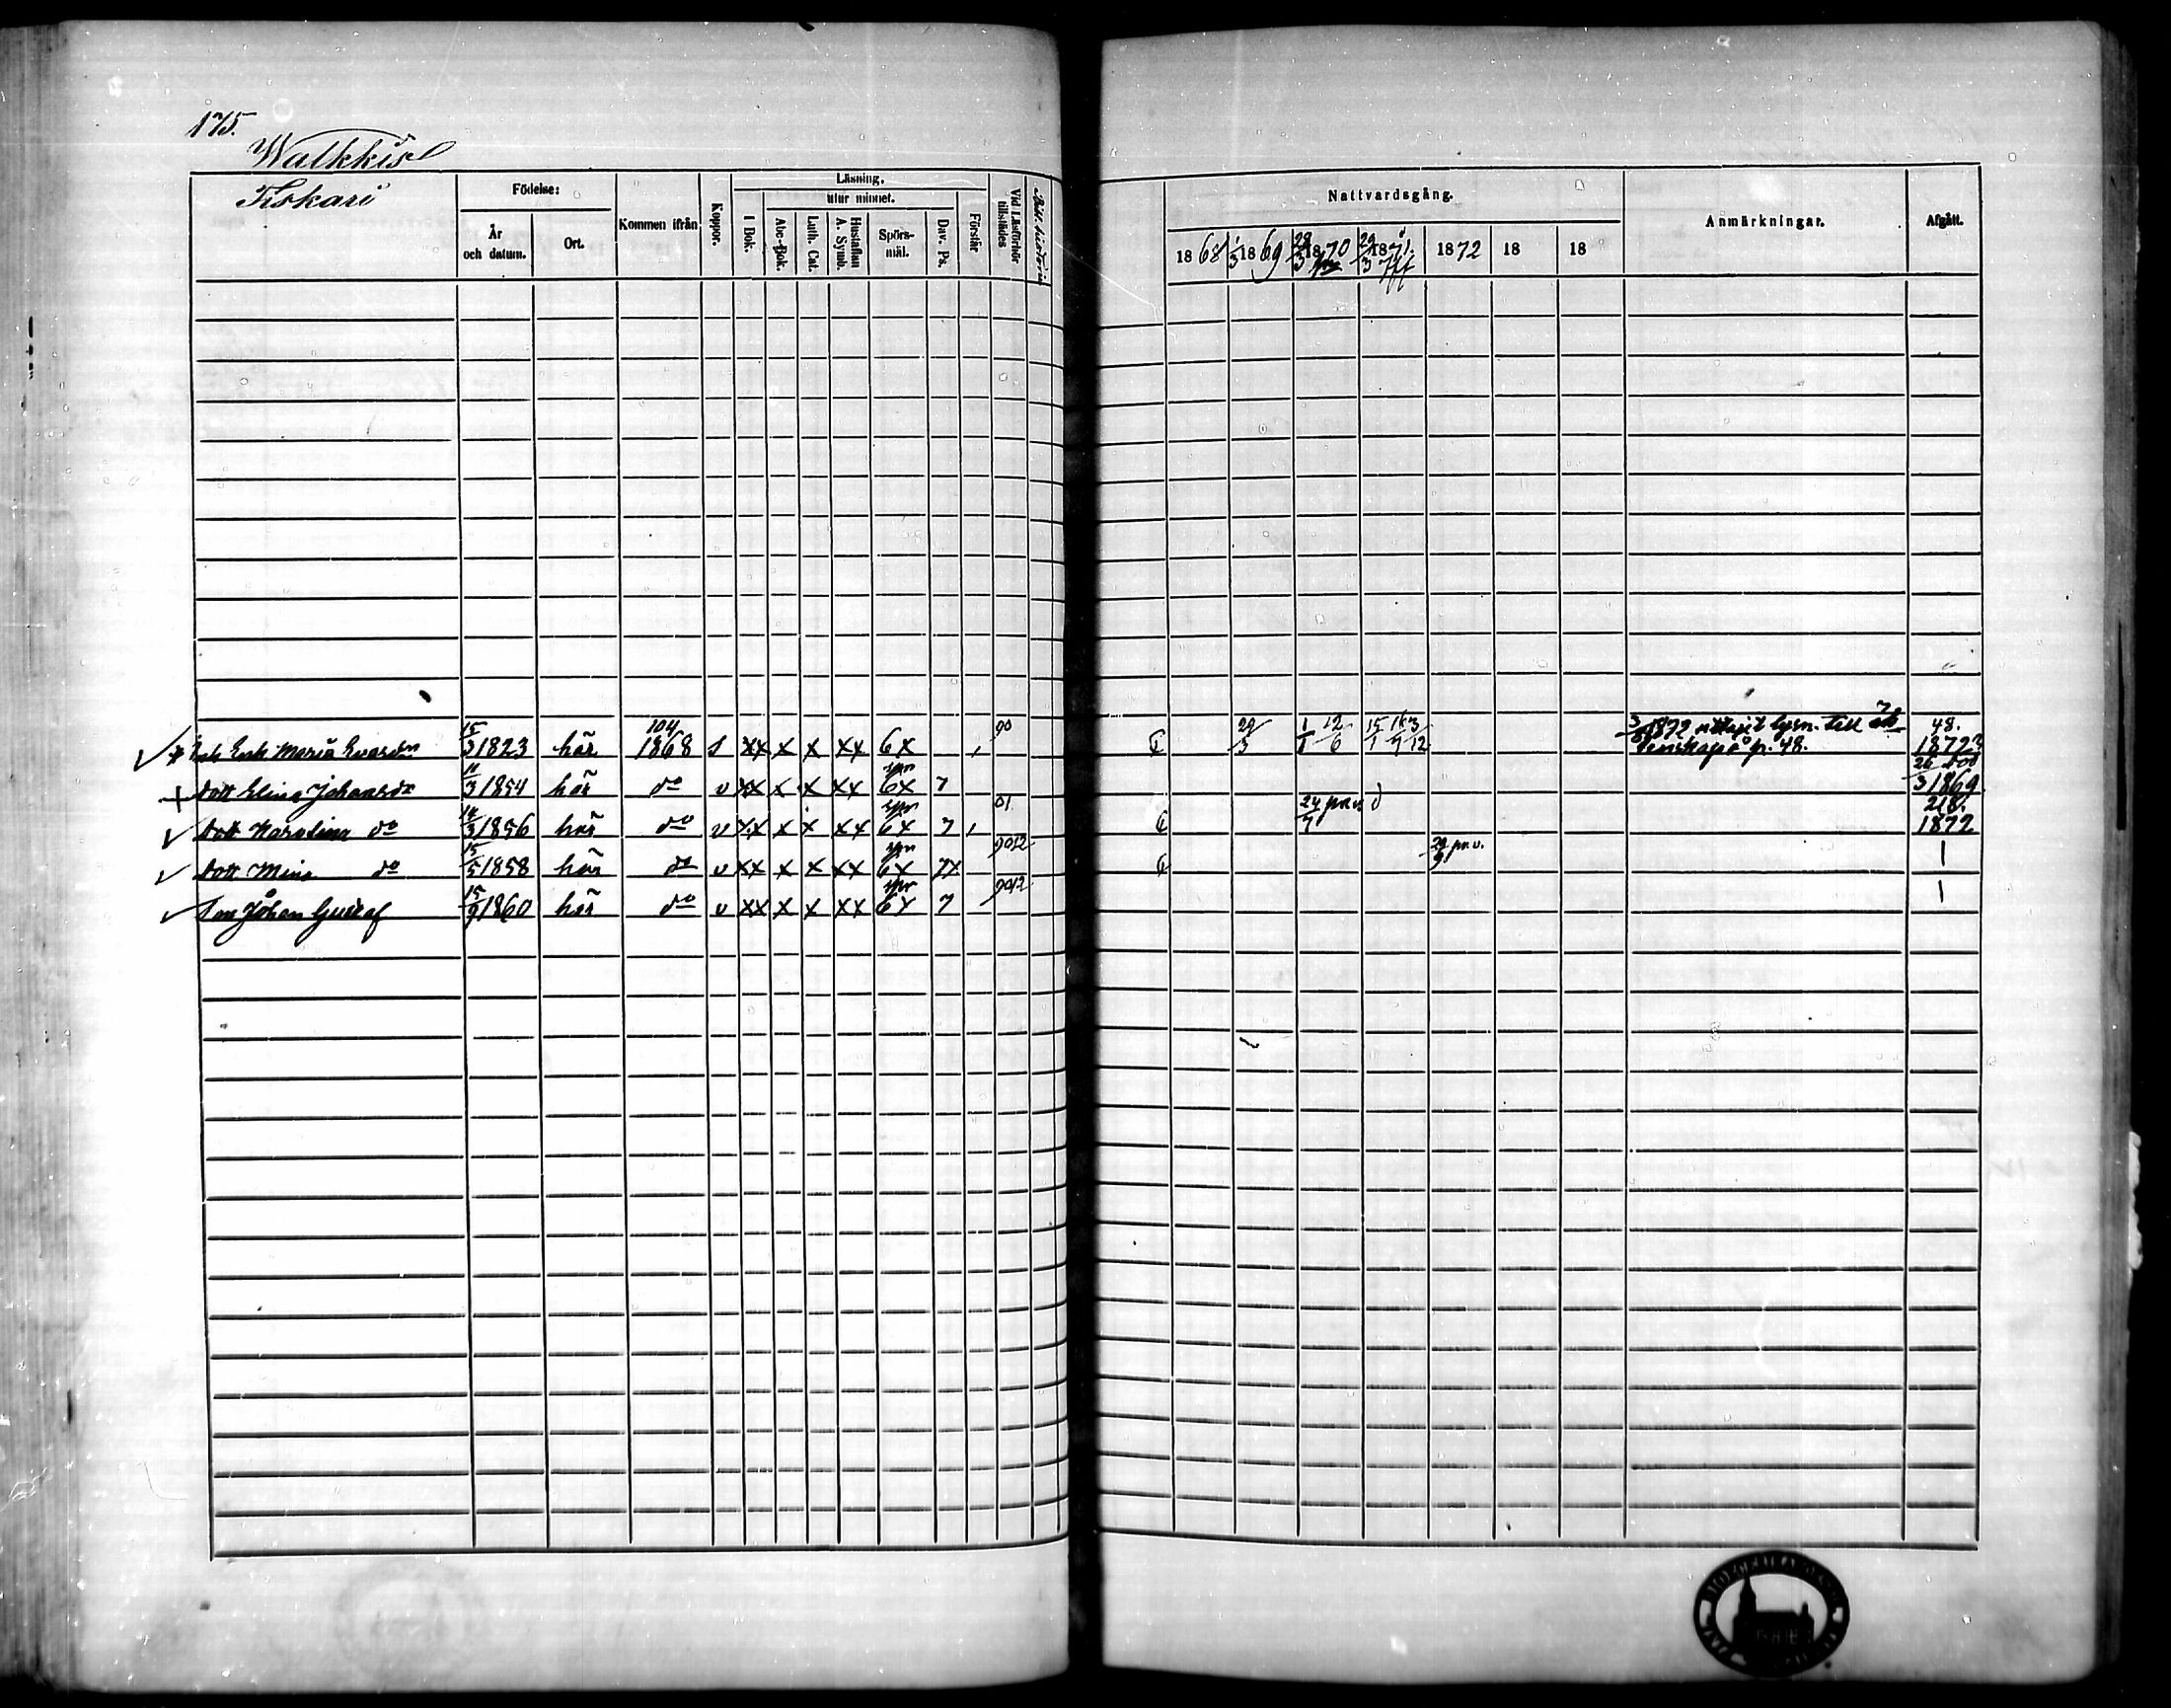 175.
Walkkis
Kiskari
Födelse:
År och datum.
Ort.
Kommen ifrån
Koppor.
Läsning,
utur minnet.
I Bok.
Abc-Bok.
Luth. Cat.
Hustaflan A. Symb.
Spörs-mål.
Dav. Ps.
Förstår
Vid Läsförhör tillstädes
Bibl. historia
Nattvardsgång.
1868 1869 1870 1871. 1872 18 18
Anmärkningar.
Afgått.
Enk. Maria 15/3 1823 här 104/1868 s xx x x xx 6x 90 29/3 1/1 12/6 15/1 3/12 1872 uttagit lysn. till p. 48. 48. 1872
Dott Elina Johansdr 11/3 1854 här do v xx x x xx spr 6x 7 26 död 3 1869
Dott Karolina do 14/3 1856 här do v xx x x xx spr 6x 7 01 24/7 218. 1872
Dott Mina do 15/5 1858 här do v xx x x xx spr 6x 7x 9012 29/9
Son Johan Gustaf 15/9 1860 här do v xx x x xx spr 6x 7 9012